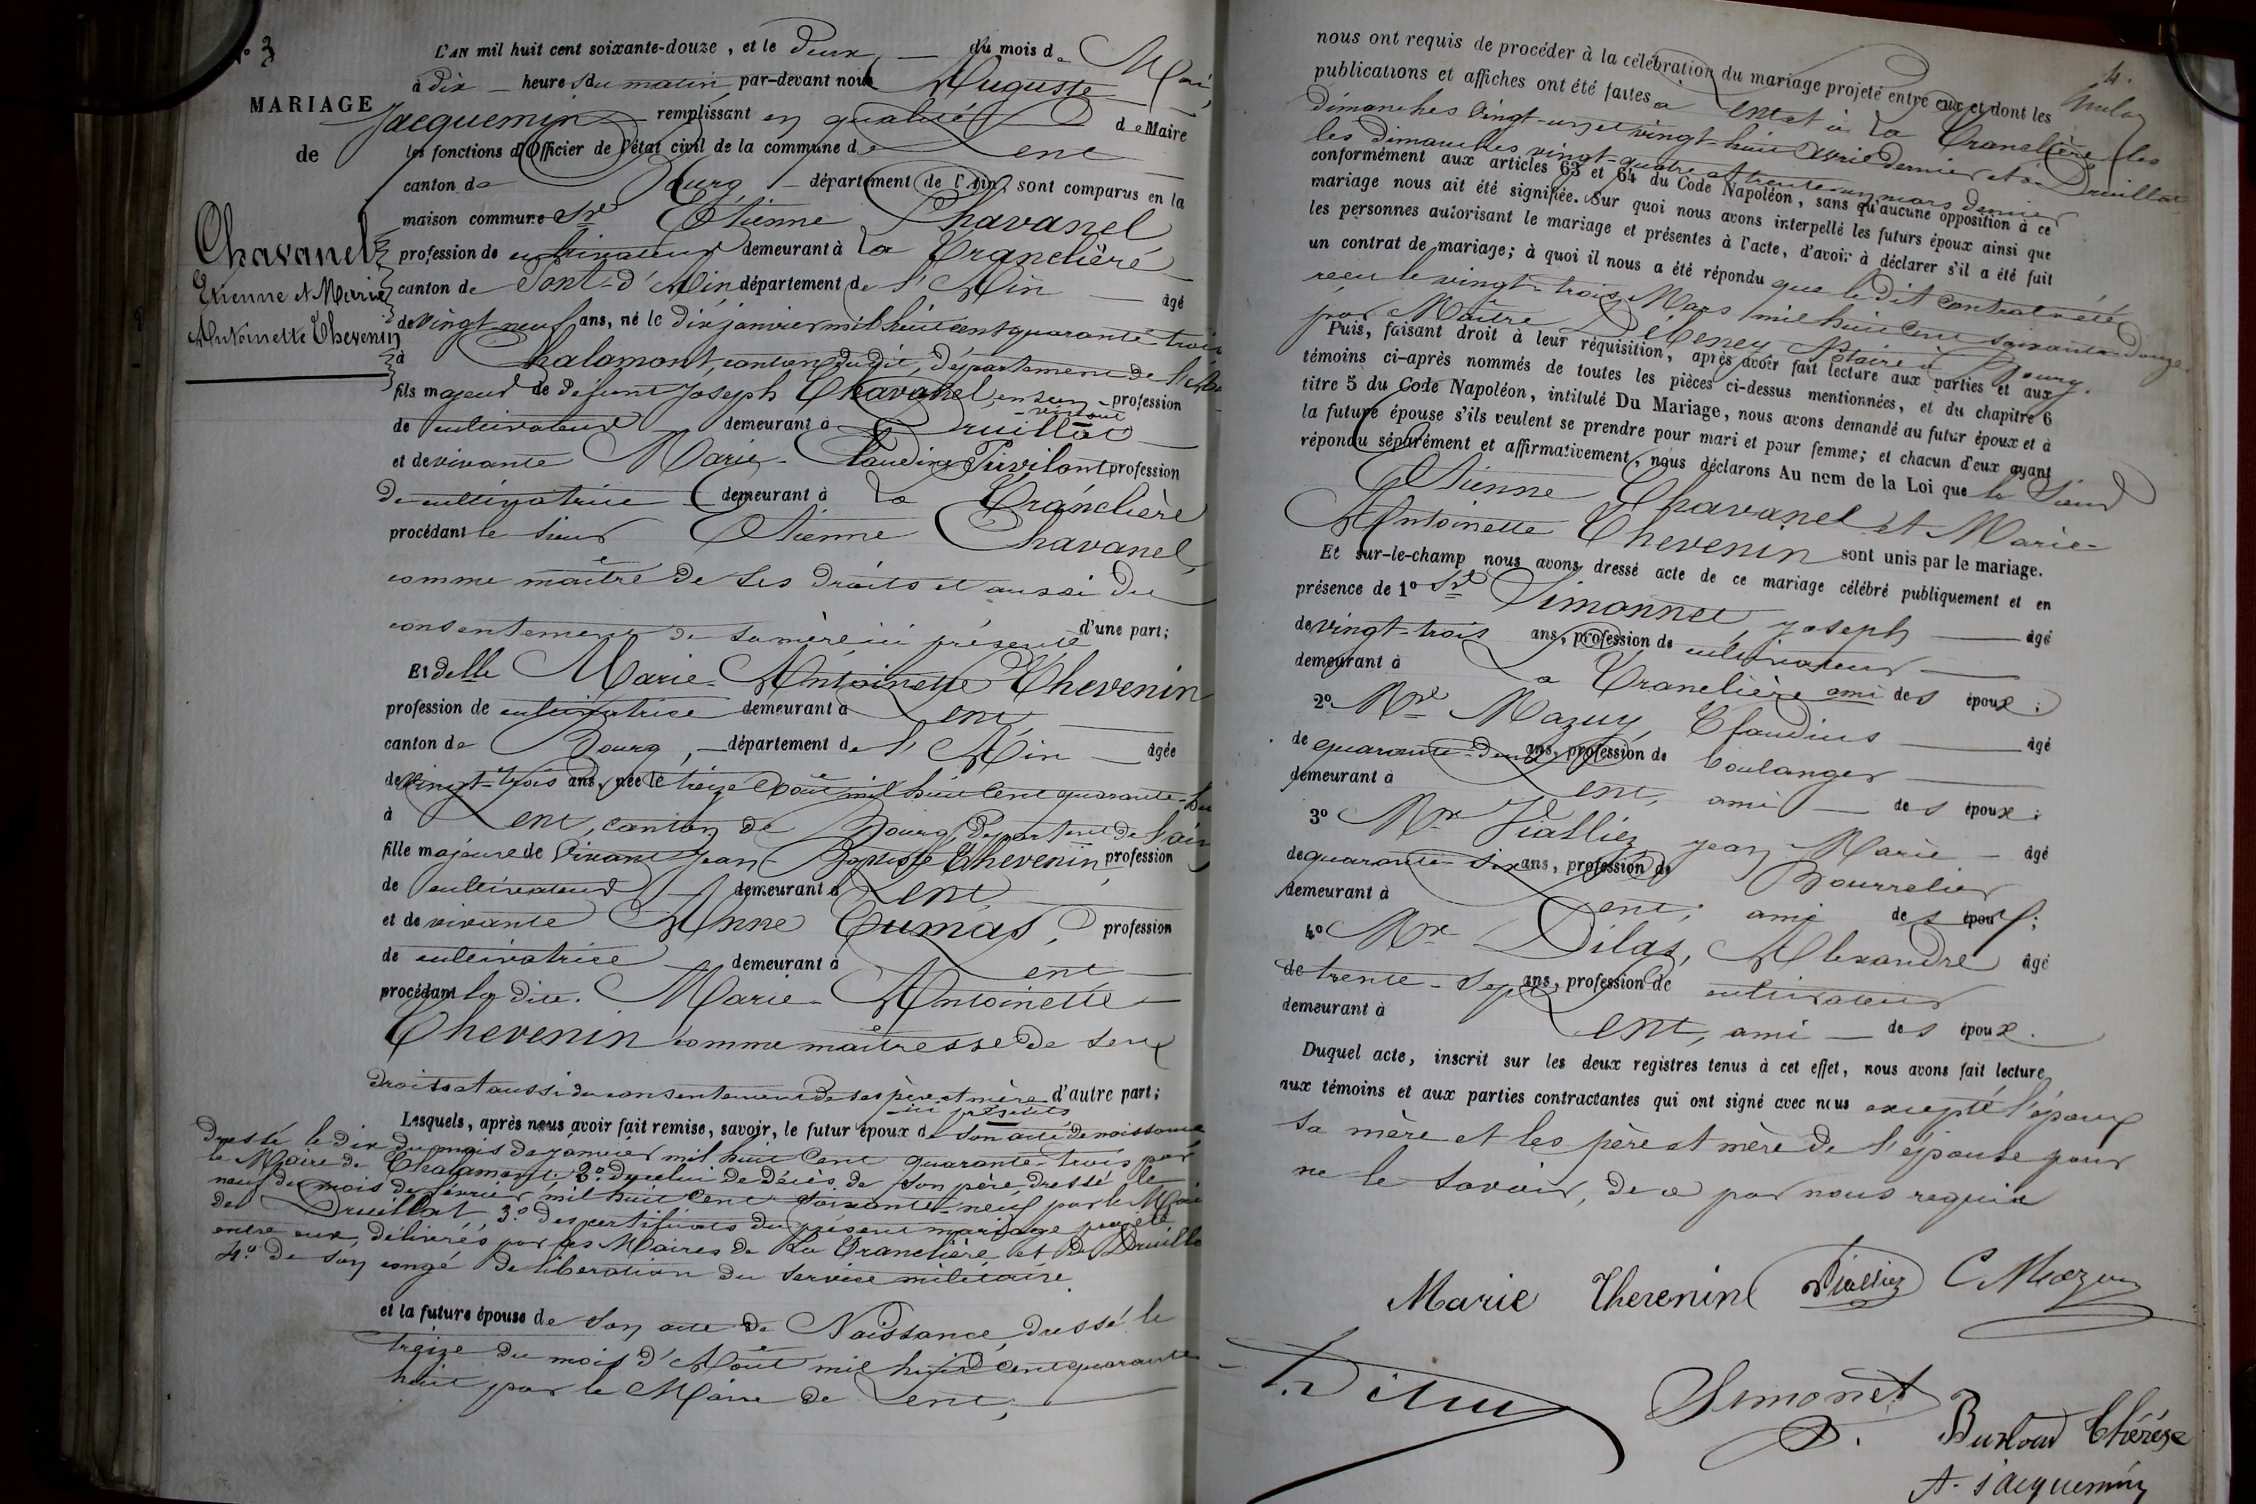 N° 3
MARIAGE
de
Chavanel
Etienne et Marie
Antoinette Thevenin
L'AN mil huit cent soixante-douze, et le deux du mois de Mai,
à dix heures du matin par-devant nous Auguste
Jacquemin remplissant en qualité de Maire
les fonctions d'Officier de l'état civil de la commune de Lent
canton de Bourg département de l'Ain, sont comparus en la
maison commune Sr Etienne Chavanel
profession de cultivateur demeurant à La Tranclière
canton de Pont-d'Ain département de l'Ain âgé
de vingt-neuf ans, né le dix janvier mil huit cent quarante-trois
à Chalamont, canton dudit, département de l'Ain
fils majeur de défunt Joseph Chavanel, en son vivant profession
de cultivateur demeurant à Druillat
et de vivante Marie-Claudine Privilont profession
de cultivatrice demeurant à La Tranclière
procédant le sieur Etienne Chavanel,
comme maître de ses droits et aussi du
consentement de sa mère ici présente d'une part;
Et delle Marie-Antoinette Thevenin
profession de cultivatrice demeurant à Lent
canton de Bourg, département de l'Ain âgée
de vingt-trois ans, née le treize Août mil huit cent quarante-huit
à Lent, canton de Bourg, département de l'ain
fille majeure de vivant Jean-Baptiste Thevenin, profession
de cultivateur demeurant à Lent
et de vivante Anne Tumas, profession
de cultivatrice demeurant à Lent
procédant la dite Marie-Antoinette
Thevenin comme maîtresse de ses
droits et aussi du consentement de ses père et mère ici présents d'autre part;
Lesquels, après nous avoir fait remise, savoir, le futur époux de son acte de naissance
dressé le dix du mois de janvier mil huit cent quarante-trois par
le Maire de Chalamont 2° de celui de décès de son père dressé le
neuf du mois de février mil huit cent soixante-neuf par le Maire
de Druillat 3° des certificats du présent mariage projeté
entre eux, délivrés par les Maires de La Tranclière et de Druillat
4° de son congé de libération du service militaire
et la future épouse de son acte de Naissance, dressé le
treize du mois d'Août mil huit cent quarante
huit par le Maire de Lent;
4.
nous ont requis de procéder à la célébration du mariage projeté entre eux et dont les
publications et affiches ont été faites à Lent et à La Tranclière les
dimanches vingt-un et vingt-huit Avril dernier et à Druillat
les dimanches vingt-quatre et trente-un mars dernier
conformément aux articles 63 et 64 du Code Napoléon, sans qu'aucune opposition à ce
mariage nous ait été signifiée. Sur quoi nous avons interpellé les futurs époux ainsi que
les personnes autorisant le mariage et présentes à l'acte, d'avoir à déclarer s'il a été fait
un contrat de mariage; à quoi il nous a été répondu que le dit contrat a été
reçu le vingt-trois Mars mil huit cent soixante-douze
par Maître Notaire à Bourg.
Puis, faisant droit à leur réquisition, après avoir fait lecture aux parties et aux
témoins ci-après nommés de toutes les pièces ci-dessus mentionnées, et du chapitre 6
titre 5 du Code Napoléon, intitulé Du Mariage, nous avons demandé au futur époux et à
la future épouse s'ils veulent se prendre pour mari et pour femme; et chacun d'eux ayant
répondu séparément et affirmativement, nous déclarons Au nom de la Loi que le Sieur
Etienne Chavanel et Marie-
Antoinette Thevenin sont unis par le mariage.
Et sur-le-champ nous avons dressé acte de ce mariage célébré publiquement et en
présence de 1° Sr Simonnet Joseph âgé
de vingt-trois ans, profession de cultivateur
demeurant à La Tranclière ami des époux;
2° Mr Mazuy Claudius âgé
de quarante-deux ans, profession de boulanger
demeurant à Lent, ami des époux;
3° Mr Vialliez Jean Marie âgé
de quarante-six ans, profession de Bourrelier
demeurant à Lent; ami des époux;
4° Mr Dilas, Alexandre âgé
de trente-sept ans, profession de cultivateur
demeurant à Lent, ami des époux.
Duquel acte, inscrit sur les deux registres tenus à cet effet, nous avons fait lecture
aux témoins et aux parties contractantes qui ont signé avec nous excepté l'époux
sa mère et les père et mère de l'épouse pour
ne le savoir, de ce par nous requis
Marie Thevenin Vialliez C Mazuy
Simonet
Thérèse
A. Jacquemin